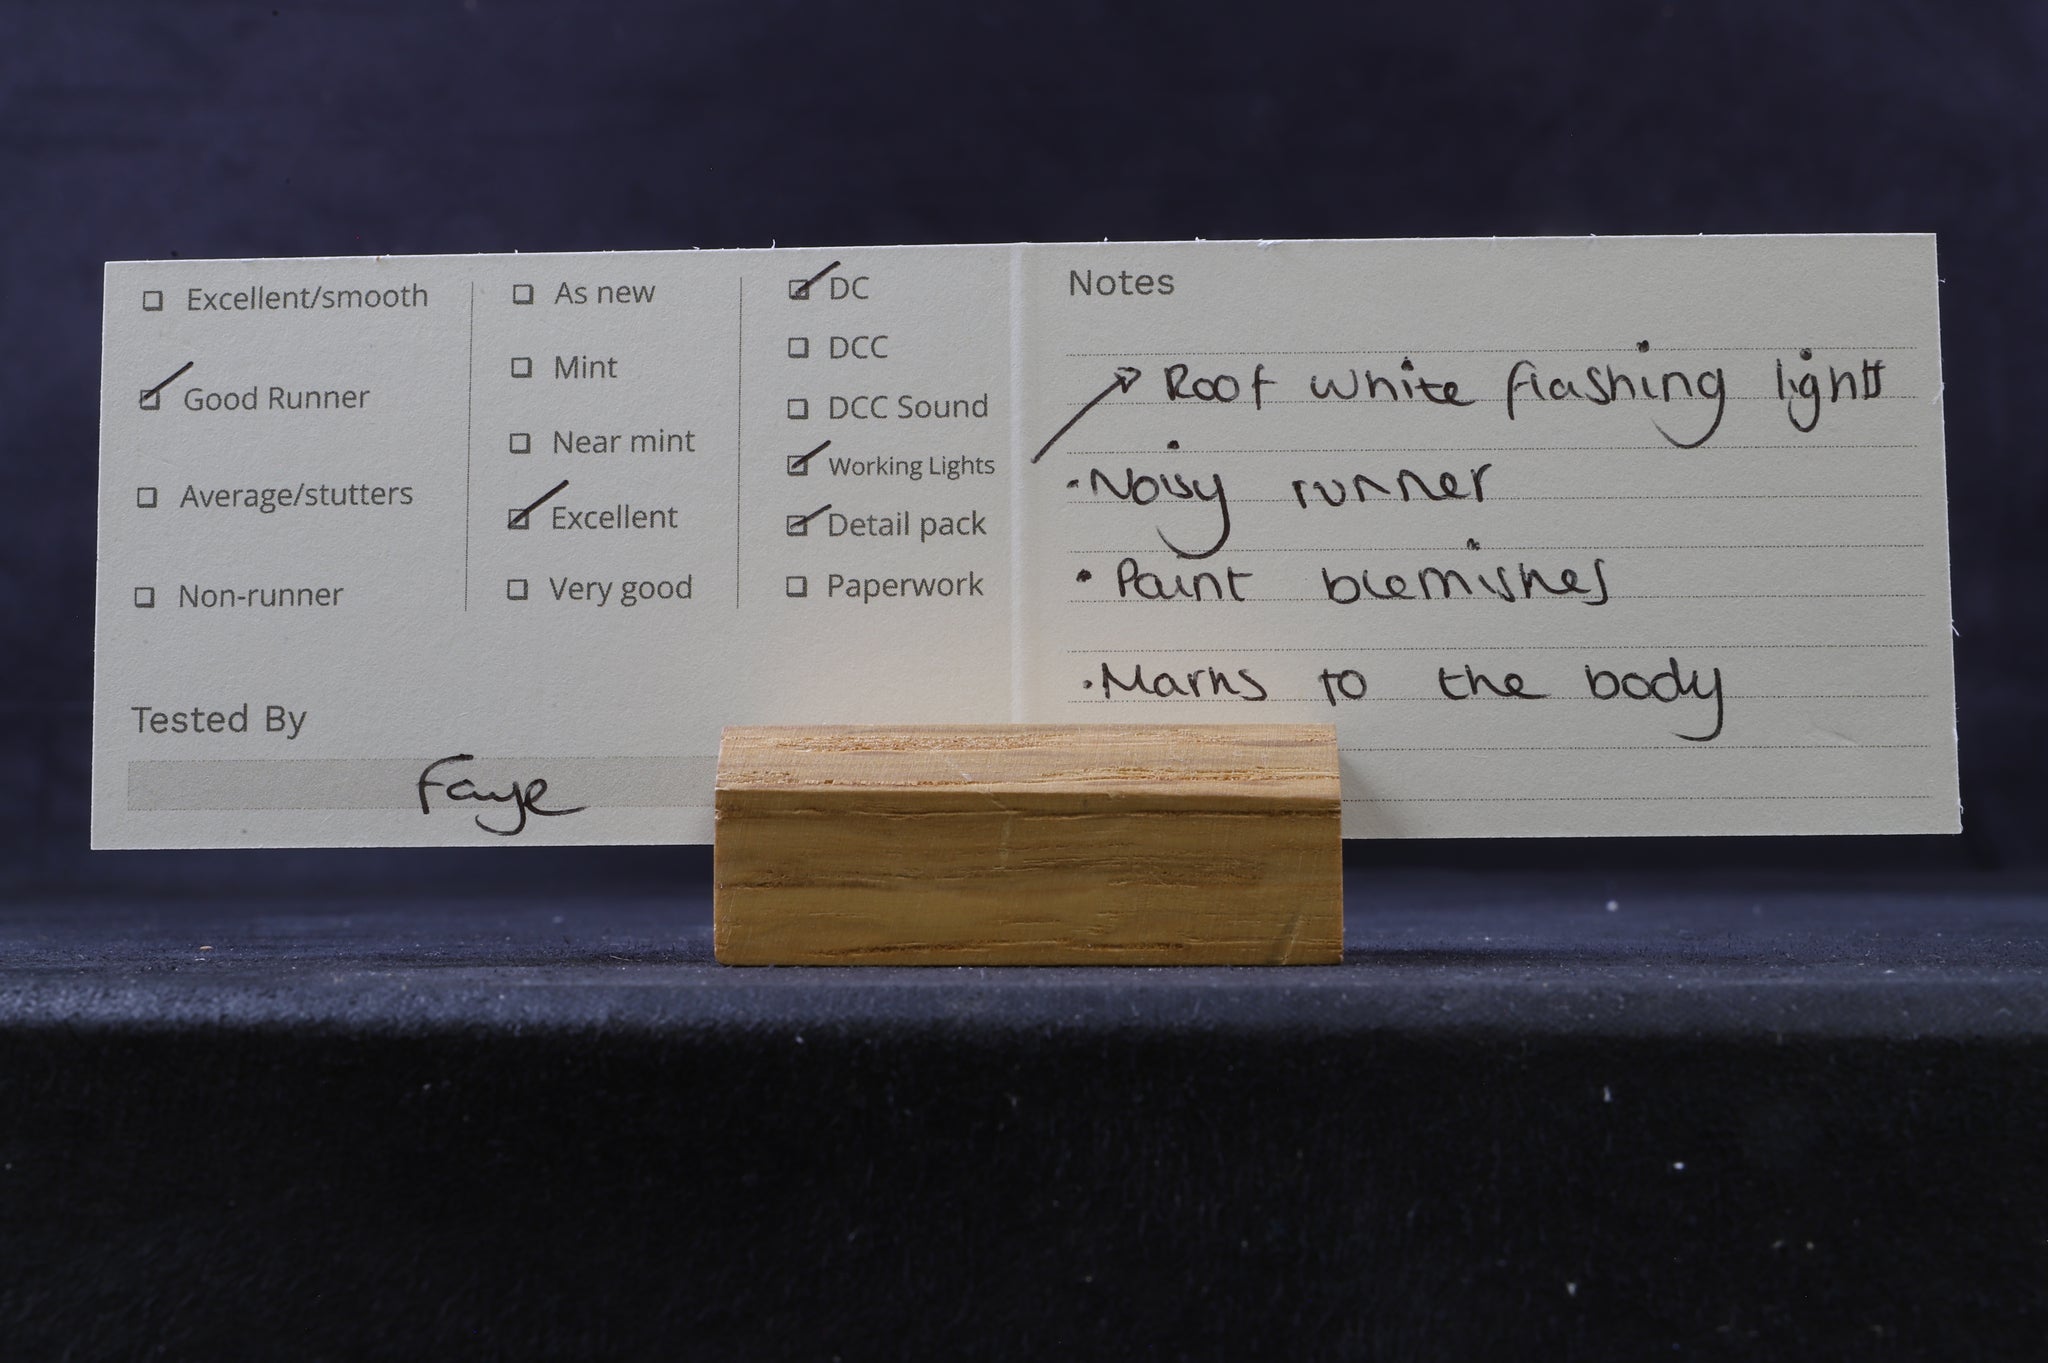 Excellent/smooth
Good Runner
Average/stutters
Non-runner
As new
Mint
Near mint
Excellent
Very good
DC
DCC
DCC Sound
Working Lights
Detail pack
Paperwork
Tested By
Faye
Notes
Roof white flashing lights
• Noisy runner
• Paint blemishes
• Marks to the body